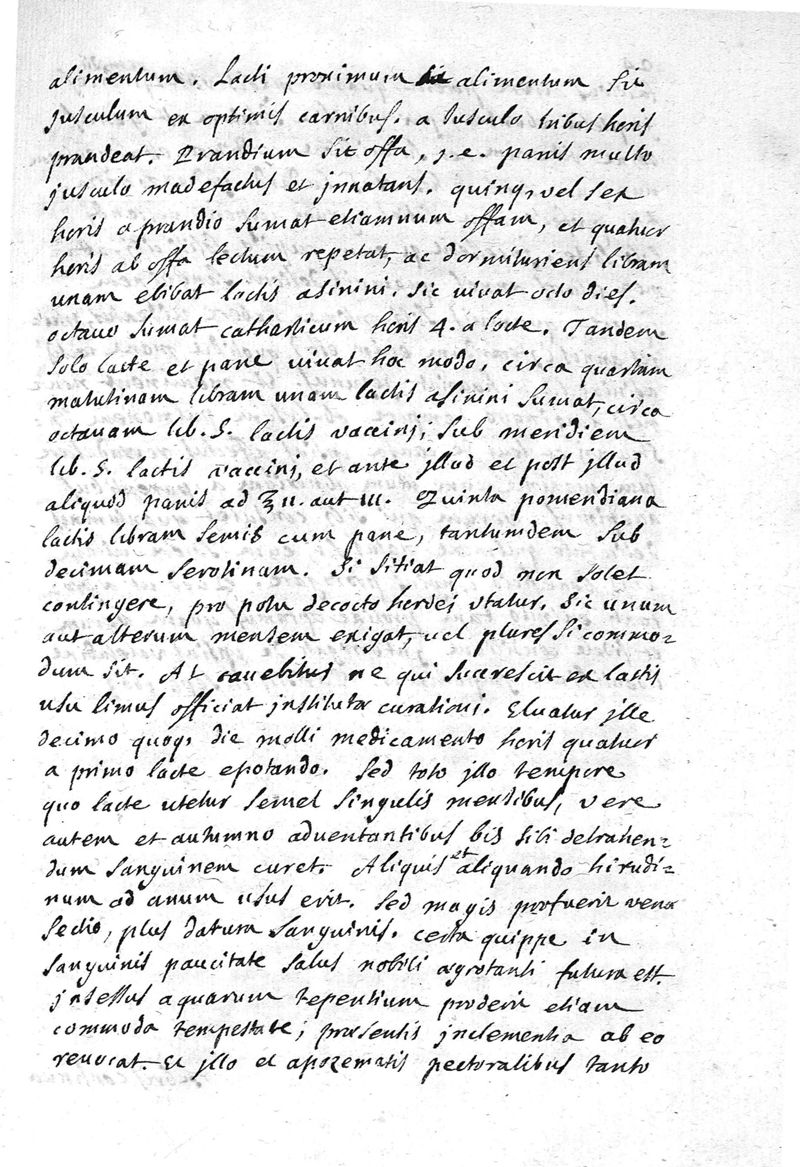 alimentum. Lacti proximum alimentum sit
jusculum ex optimis carnibus. a Iusculo tribus horis
prandeat. Prandium sit offa, j.e. panis multo
jusculo madefactus et jnnatans. quinq, vel sex
horis a prandio sumat etiamnum offam, et quatuor
horis ab offa lectum repetat, ac dormituriens libram
unam elibat lactis asinini. Sic vivat octo dies.
octavo sumat catharticum horis 4. a lacte. Tandem
solo lacte et pane vivat hoc modo. circa quartam
matutinam libram unam lactis asinini sumat, circa
octavam lib. S. lactis vaccinj; sub meridiem
lib. S. lactis vaccinj, et ante jllud et post jllud
aliquod panis ad ℥ II. aut III. Quinta pomeridiana
lactis libram semis cum pane, tantumdem sub
decimam serotinam. Si sitiat quod non solet
contingere, pro potu decocto hordei vtatur. Sic unum
aut alterum mensem exigat, vel plures si commo=
dum sit. At cavebitur ne qui succrescit ex lactis
usu limus officiat jnstitutæ curationi. Eluatur jlle
decimo quoq, die molli medicamento horis quatuor
a primo lacte epotando. Sed toto jllo tempore
quo lacte utetur semel singulis mensibus, vere
autem et autumno adventantibus bis sibi detrahen=
dum sanguinem curet. Aliquis et aliquando hirudi=
num ad anum usus erit. Sed magis profuerit venæ
sectio, plus datura sanguinis. certa quippe in
sanguinis paucitate salus nobili ægrotanti futura est.
jnsessus aquarum tepentium proderit etiam
commoda tempestate; præsentis jnclementia ab eo
revocat. Ex jllo et apozematis pectoralibus tanto